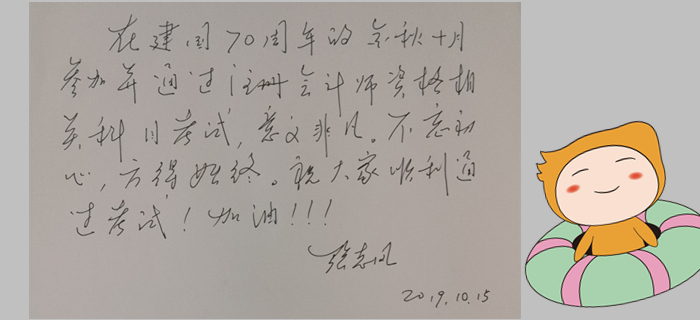 在建国70周年的金秋十月
参加并通过注册会计师资格相
关科目考试，意义非凡。不忘初
心，方得始终。祝大家顺利通
过考试！加油！！！
张志凤
2019.10.15